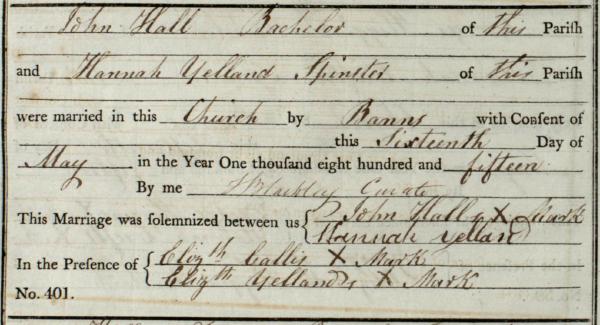 John Hall Bachelor of this Pariſh
and Hannah Yelland Spinster of this Pariſh
were married in this Church by Banns with Conſent of
this Sixteenth Day of
May in the Year One thouſand eight hundred and fifteen
By me Curate
This Marriage was ſolemnized between us { John Hall X Mark
Hannah Yelland
In the Preſence of { Elizth Callis X Mark
Elizth Yellands X Mark
No. 401.